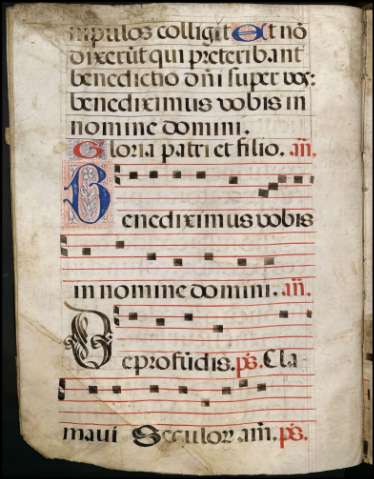 mpulos colligit Et nõ
dixerũt qui preteribant
benedictio dñi super vos:
benediximus vobis in
nomine domini.
Gloria patri et filio. añ.
Benediximus vobis
in nomine domini. añ.
De profũdis. ps. Cla
maui Seculor am̃. ps.